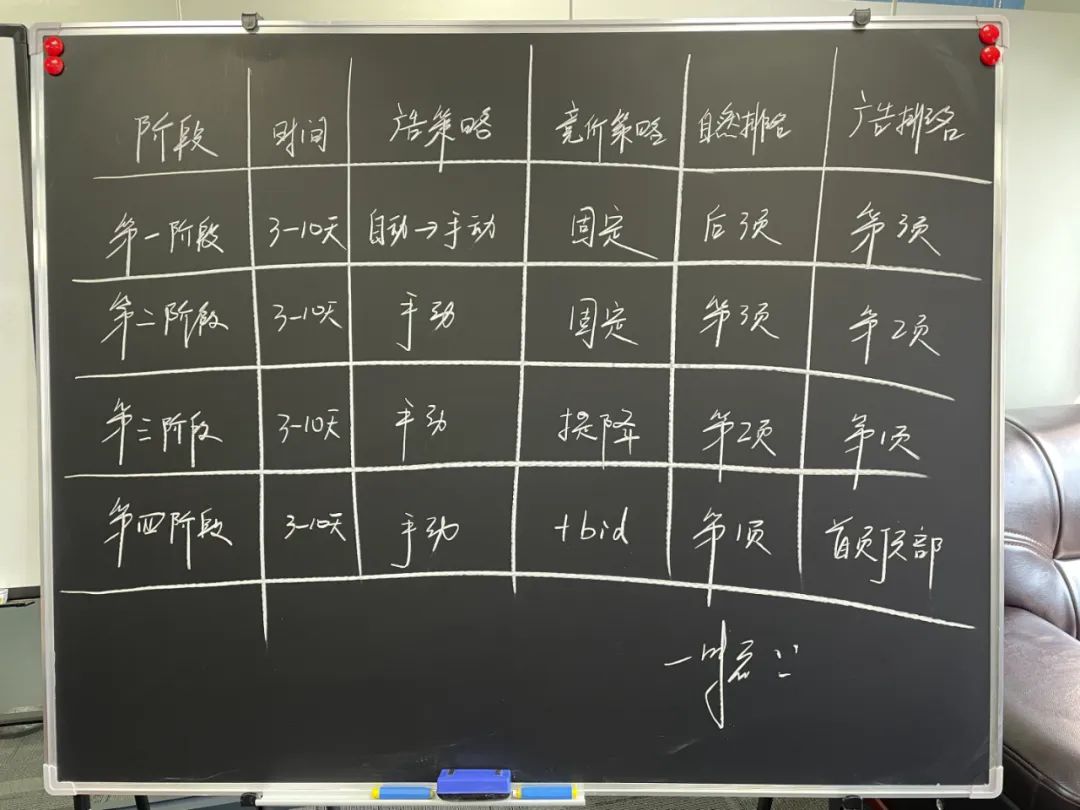 阶段 时间 广告策略 竞价策略 自然排名 广告排名
第一阶段 3-10天 自动→手动 固定 后3页 第3页
第二阶段 3-10天 手动 固定 第3页 第2页
第三阶段 3-10天 手动 提降 第2页 第1页
第四阶段 3-10天 手动 +bid 第1页 首页顶部